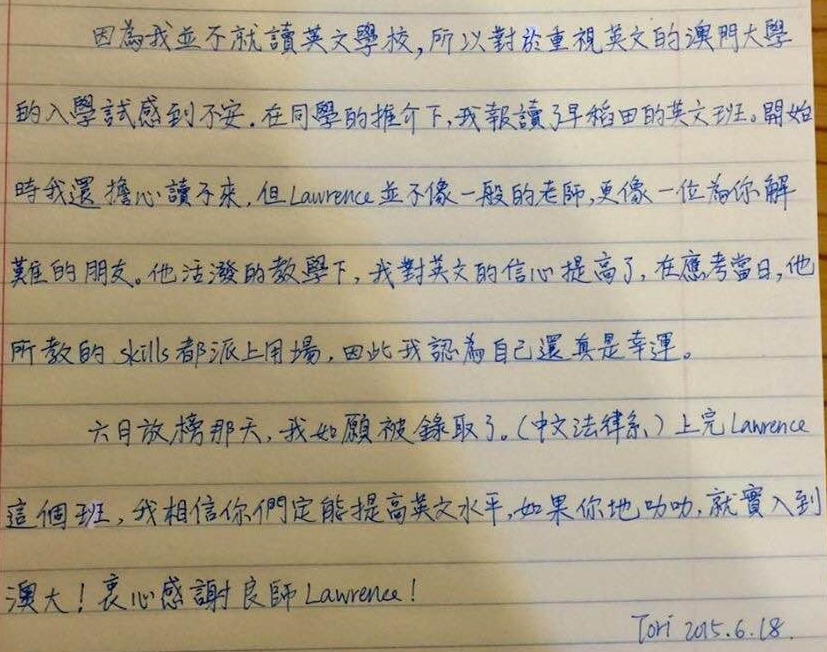 因為我並不就讀英文學校,所以對於重視英文的澳門大學
的入學試感到不安.在同學的推介下,我報讀了早稻田的英文班。開始
時我還擔心讀不來,但Lawrence並不像一般的老師,更像一位為你解
難的朋友。他活潑的教學下,我對英文的信心提高了,在應考當日,他
所教的skills都派上用場,因此我認為自己還真是幸運。
六月放榜那天,我如願被錄取了。(中文法律系)上完Lawrence
這個班,我相信你們定能提高英文水平,如果你地叻叻,就實入到
澳大!衷心感謝良師Lawrence!
Tori 2015.6.18.